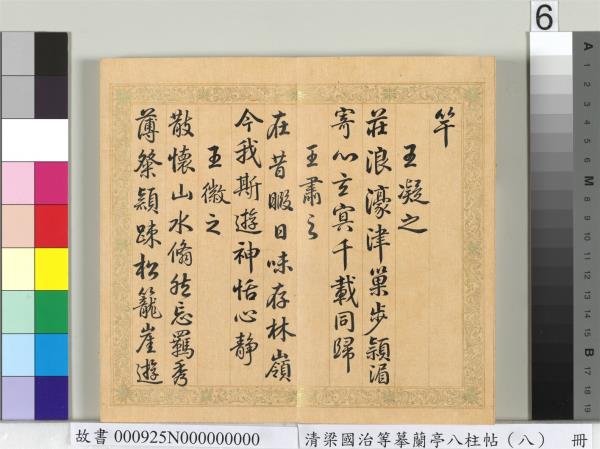 竿
王凝之
莊浪濠津巢步潁湄
寄心玄冥千載同歸
王肅之
在昔暇日味存林嶺
今我斯遊神怡心靜
王徽之
散懷山水翛然忘羈秀
薄粲穎踈松籠崖遊
6
故書 000925N000000000
清梁國治等摹蘭亭八柱帖（八） 冊
A
1
2
3
4
5
6
M
8
9
10
11
12
13
14
15
B
17
18
19